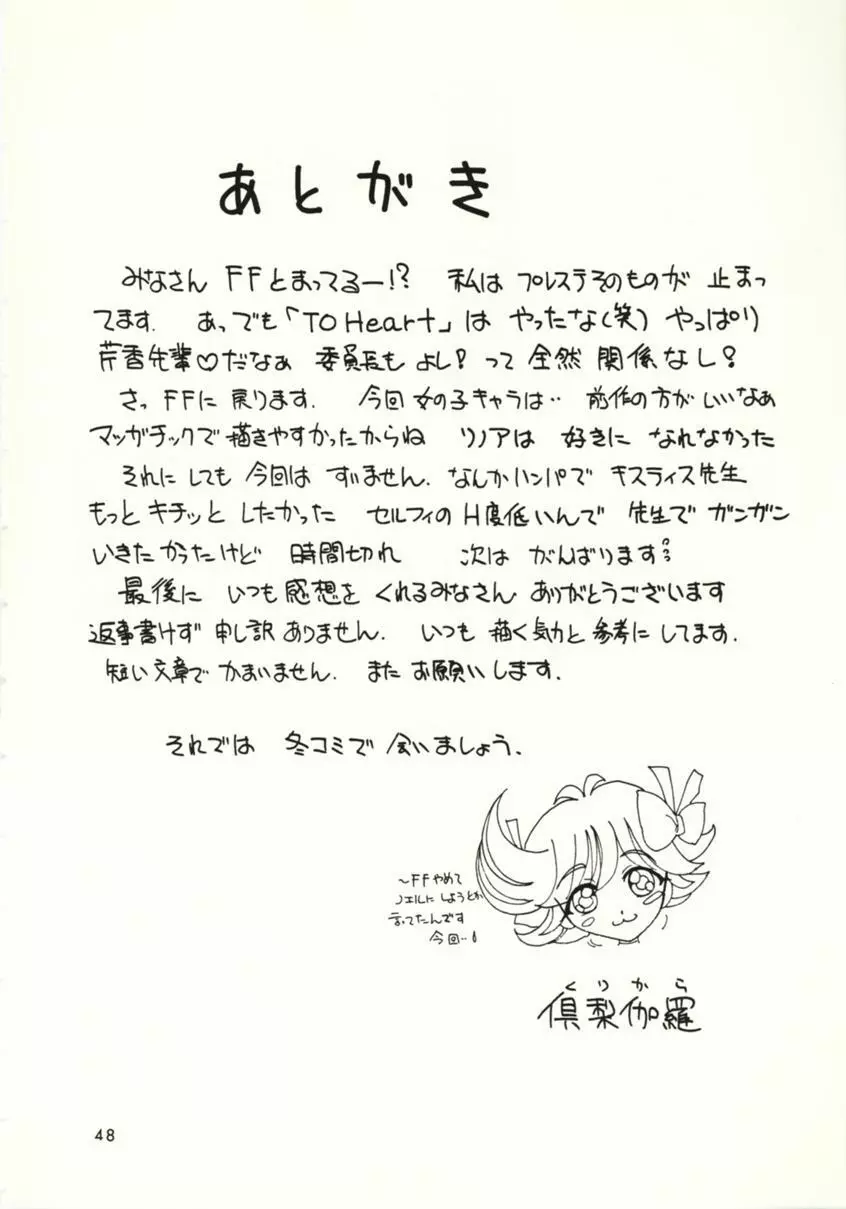 あとがき
みなさん FFとまってるー!? 私は プレステそのものが 止まっ
てます. あっでも「TO Heart」は やったな(笑) やっぱり
芹香先輩♡だなぁ 委員長もよし! って 全然 関係なし!
さっ FFに 戻ります. 今回 女の子キャラは‥ 前作の方が いいなぁ
マンガチックで描きやすかったからね リノアは 好きに なれなかった
それにしても 今回は すいません. なんかハンパで キスティス先生
もっと キチッと したかった セルフィのH度低いんで 先生で ガンガン
いきたかったけど 時間切れ 次は がんばります
最後に いつも 感想を くれるみなさん ありがとうございます
返事書けず 申し訳ありません. いつも 描く気力と 参考に してます.
短い文章で かまいません. また お願いします.
それでは 冬コミで 会いましょう.
～FFやめて
ノエルに しようとか
言ってたんです
今回‥
くりから
倶梨伽羅
48